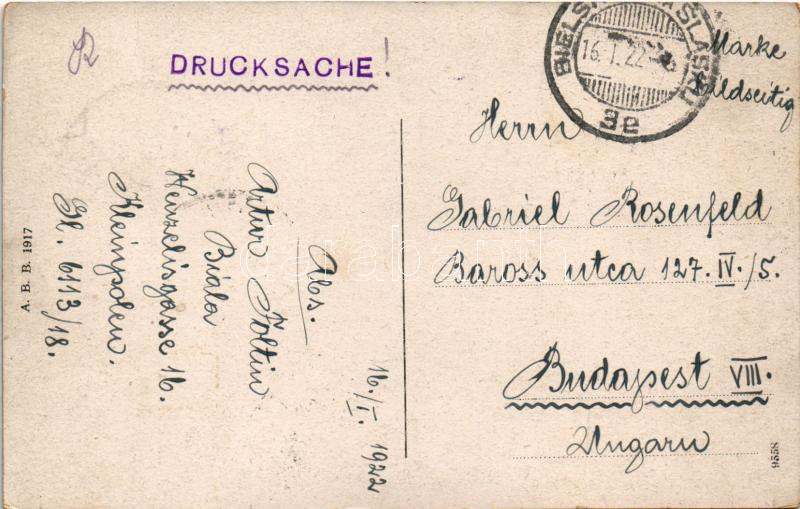 DRUCKSACHE!
BIELSKO (ŚLĄSK)
16.I.22
3e
Marke
bildseitig
Herrn
Gabriel Rosenfeld
Baross utca 127. IV./5.
Budapest VIII.
Ungarn
Abs.
Artur Foltin
Biala
Wenzelisgasse 16.
Kleinpolen.
Gl. 6113/18.
16./I. 1922
A. B. B. 1917
9558
darabanth